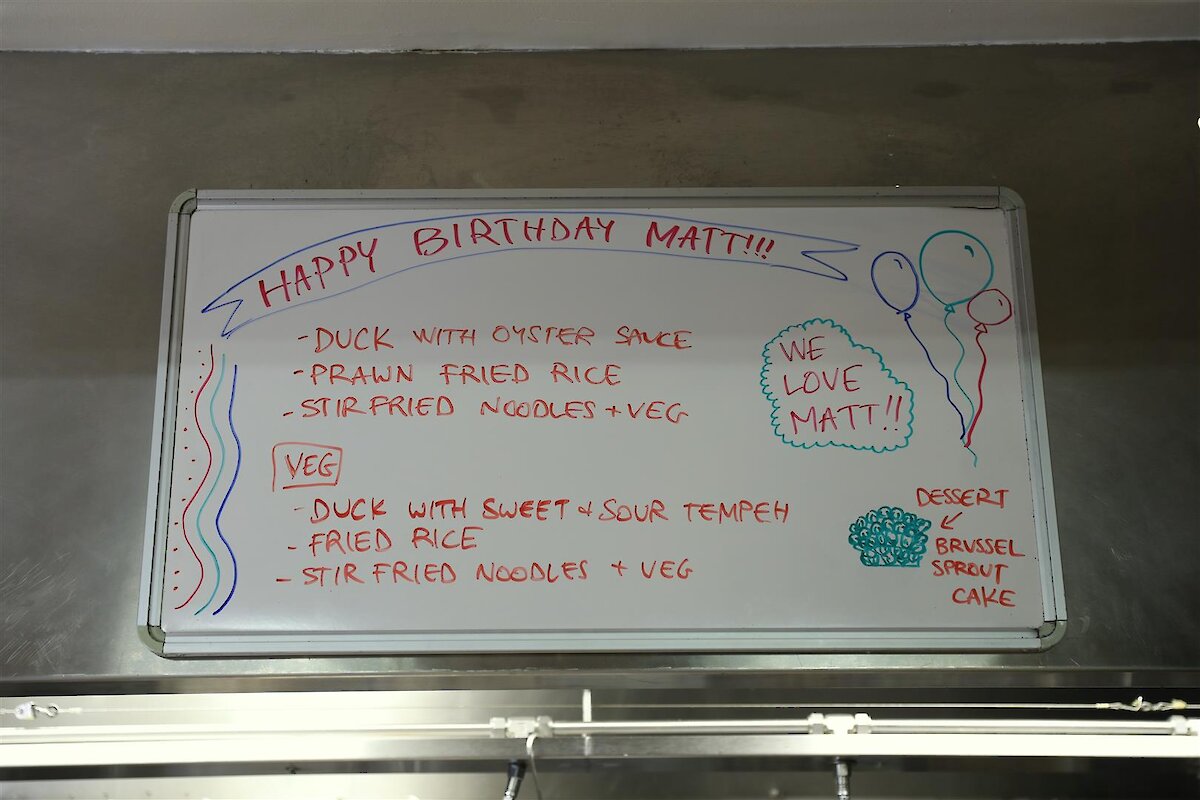 HAPPY BIRTHDAY MATT!!!
- DUCK WITH OYSTER SAUCE
- PRAWN FRIED RICE
- STIR FRIED NOODLES + VEG
WE
LOVE
MATT!!
VEG
- DUCK WITH SWEET & SOUR TEMPEH
- FRIED RICE
- STIR FRIED NOODLES + VEG
DESSERT
BRUSSEL
SPROUT
CAKE